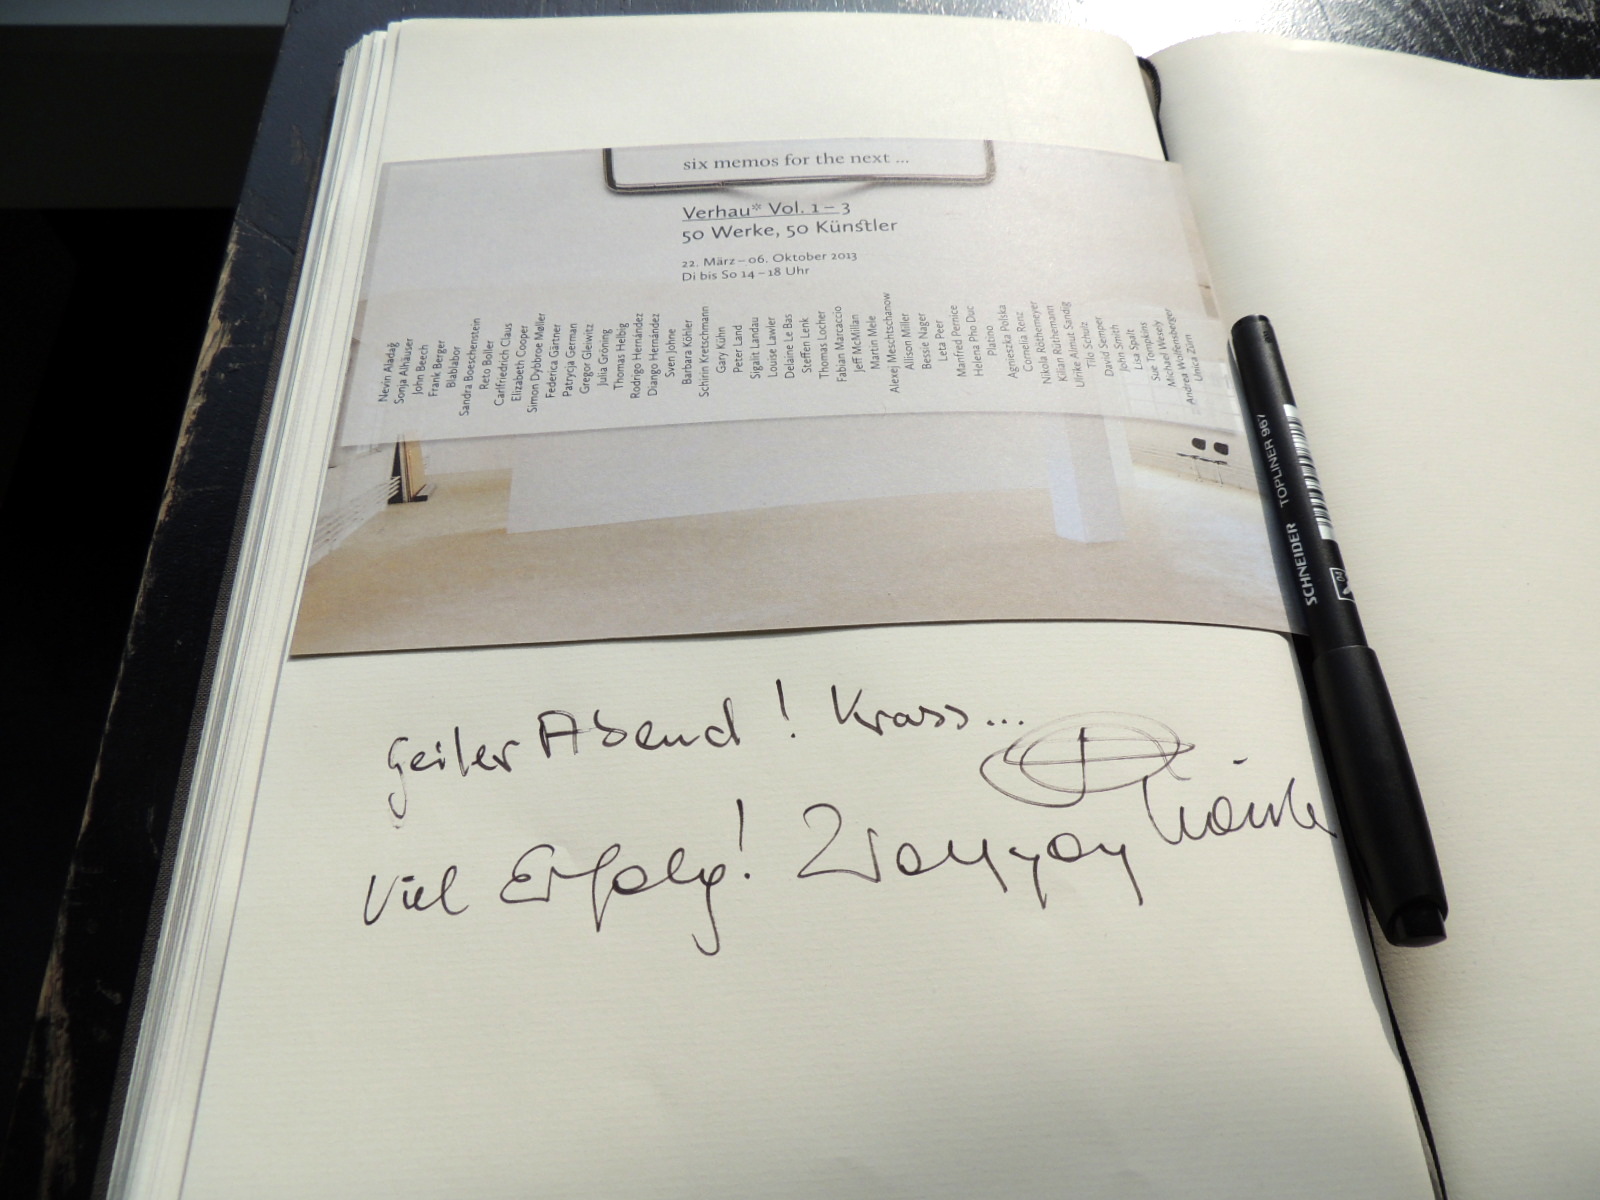 six memos for the next ...
Verhau* Vol. 1 – 3
50 Werke, 50 Künstler
22. März – 06. Oktober 2013
Di bis So 14 – 18 Uhr
Nevin Aladağ
Sonja Alhäuser
John Beech
Frank Berger
Blablabor
Sandra Boeschenstein
Reto Boller
Carlfriedrich Claus
Elizabeth Cooper
Simon Dybbroe Møller
Federica Gärtner
Patrycja German
Gregor Gleiwitz
Julia Gröning
Thomas Helbig
Rodrigo Hernández
Diango Hernández
Sven Johne
Barbara Köhler
Schirin Kretschmann
Gary Kühn
Peter Land
Sigalit Landau
Louise Lawler
Delaine Le Bas
Steffen Lenk
Thomas Locher
Fabian Marcaccio
Jeff McMillan
Martin Mele
Alexej Meschtschanow
Allison Miller
Bessie Nager
Leta Peer
Manfred Pernice
Helena Pho Duc
Platino
Agnieszka Polska
Cornelia Renz
Nikola Röthemeyer
Kilian Rüthemann
Ulrike Almut Sandig
Tilo Schulz
David Semper
John Smith
Lisa Spalt
Sue Tompkins
Michael Wesely
Andrea Wolfensberger
Unica Zürn
SCHNEIDER TOPLINER 967
Geiler Abend! Krass...
Viel Erfolg!